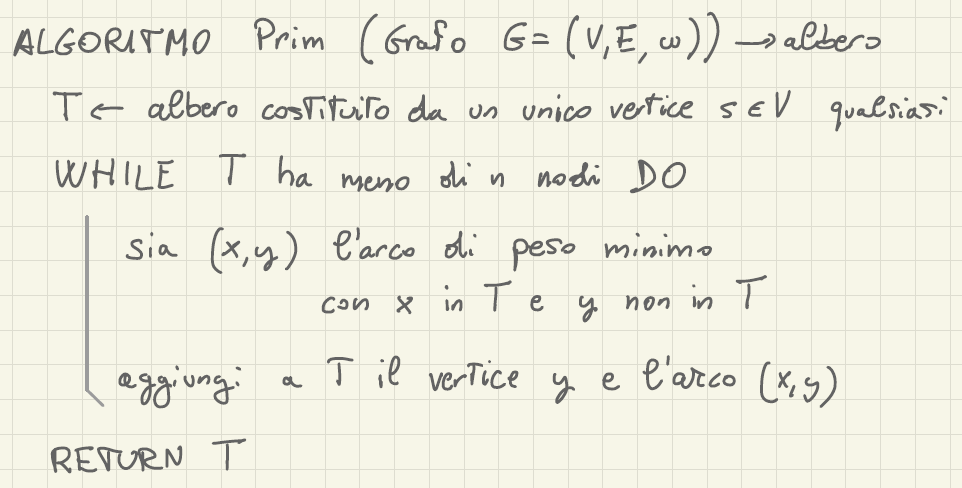 ALGORITMO Prim (Grafo G = (V, E, ω)) → albero
T ← albero costituito da un unico vertice s ∈ V qualsiasi
WHILE T ha meno di n nodi DO
sia (x,y) l'arco di peso minimo
con x in T e y non in T
aggiungi a T il vertice y e l'arco (x,y)
RETURN T